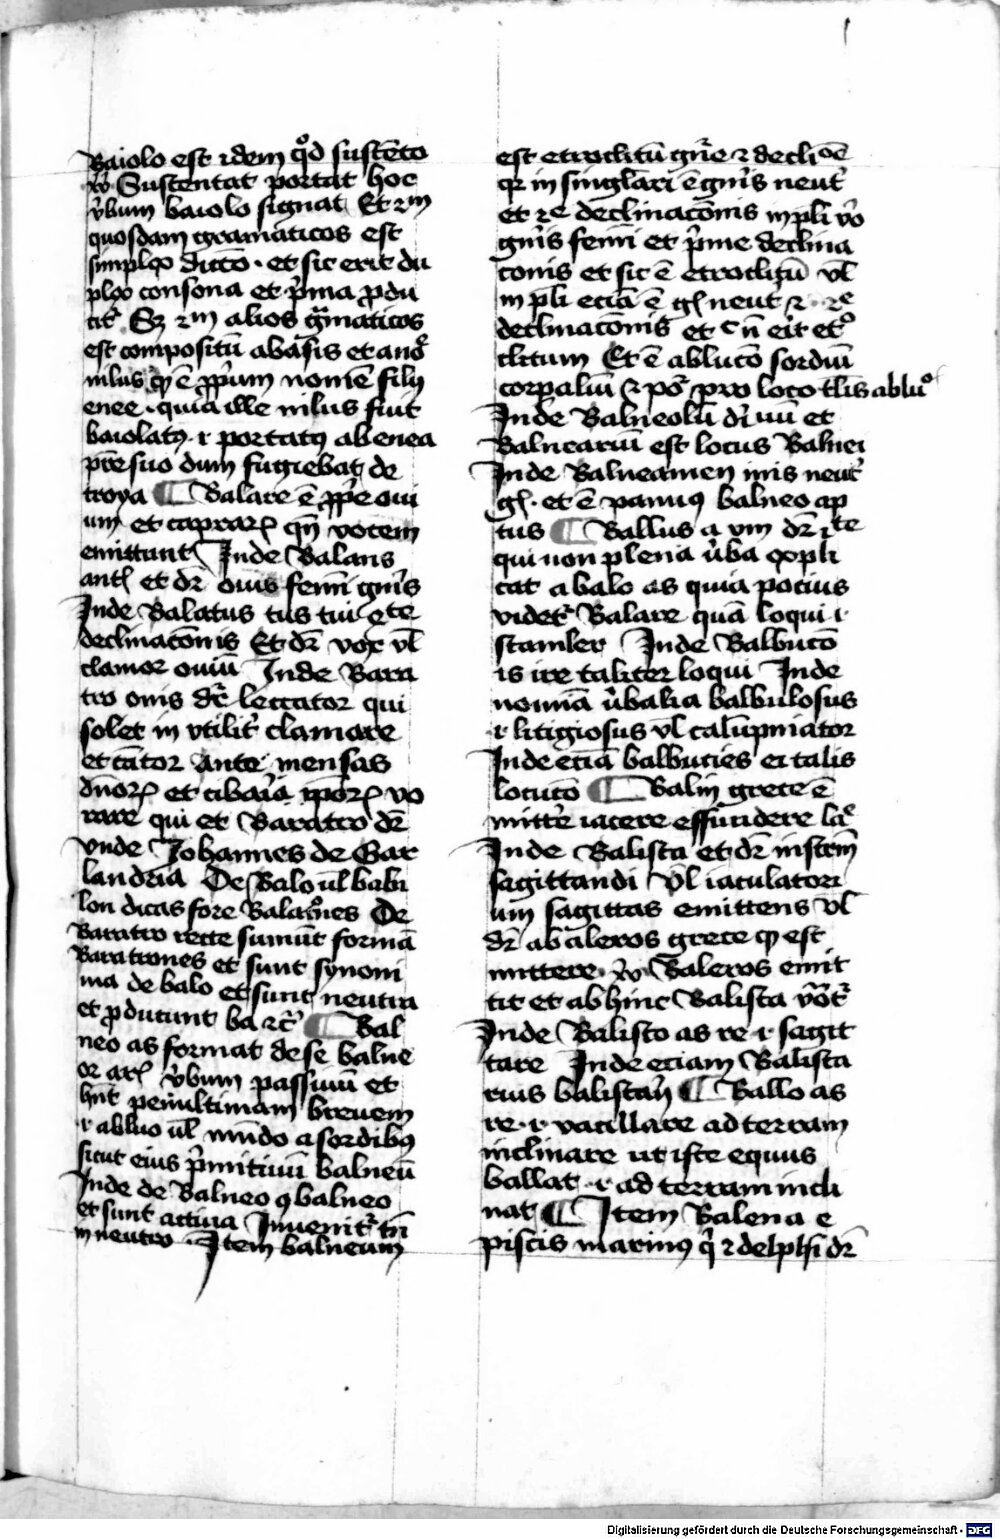 Baiolo est idem qd sustēto
v̄o Sustentat portat hoc
v̓bum baiolo signat Et 2m
quosdam gramaticos est
simplex dictō · et sic erit du
plex consona et p̓ma ꝓdu
cit᷑ Sꝫ 2m alios gͣmaticos
est compositū abasis et
nilus ē ꝓp̓um nomē filij
enee · quia ille nilus fuit
baiolatꝰ · i · portatꝰ ab enea
pr̄e suo dum fugiebat de
troya ¶ Balare ē ꝓp̓e oui
um et caprarꝝ qn̄ vocem
emittunt Inde Balans
antꝭ et dr̄ ouis femī gn̓is
Inde Balatus tus tui 4te
declinacōnis Et dr̄ vox vl̄
clamor ouiū Inde Bara
tro onis dr̄ leccator qui
solet in vtilit̓ clamare
et cātor ante mensas
dn̄orꝝ et cibaria ip̄orꝝ vo
rare qui et Baratro dr̄
vnde Johannes de Gar
landria De Balo ul̄ babi
lon dicas fore Balatrōnes De
Baratro recte sumūt formā
Baratrones et sunt synoni
ma de balo et sunt neutra
et ꝓducunt ba 2c̄ ¶ Bal
neo as format de se balne
or arꝭ v̓bum passiuū et
hn̄t penultimam breuem
i abluo ul̄ mūdo a sordibꝰ
sicut eius p̓mitiuū balneū
Inde de Balneo 9 balneo
et sunt actiua Inuenit᷑ tn̄
in neutro · Item balneum
est etroclitū gn̓e 2 declīoe
qr in singlari ē gn̓is neut̓
et 2e declinacōnis in pl̄i v̓o
gn̓is femī et p̓me declina
conis et sic ē etroclitū vl̄
in pl̄i eciā ē gꝭ neut 2 · 2e
declinacōnis et c n̄ erit etͦ
clitum Et ē ablucō sordiū
corpaliū 2 pōt pro loco tl̄is abluͦ
Inde Balneolū di uū et
Balnearium est locus Balnei
Inde Balneamen inis neut̓
gꝭ · et ē pannꝰ balneo ap
tus ¶ Ballus a um dr̄ ite
qui non plena v̓ba expli
cat a balo as quia pocius
videt᷑ Balare quā loqui ·
stamler Inde Balbucō
is ire taliter loqui Inde
nomīa v̓balia balbulosus
i litigiosus vl̄ calūpniator
Inde eciā balbucies ei talis
locucō ¶ Balin grece ē
mitt̓e iacere effundere lāt
Inde Balista et dr̄ instr̄m
sagittandi vl̄ iaculatori
um sagittas emittens vl̄
dr̄ ab aleros grece qꝫ est
mittere v̄o Baleros emit
tit et ab hinc Balista v̓ōt᷑
Inde Balisto as re i sagit
tare Inde eciam Balista
rius balistarij ¶ Ballo as
re · i · vacillare ad terram
inclinare ut iste equus
ballat · i ad terram incli
nat ¶ Item Balena e
piscis marinꝰ q̓ 2 delphī dr̄
Digitalisierung gefördert durch die Deutsche Forschungsgemeinschaft - DFG